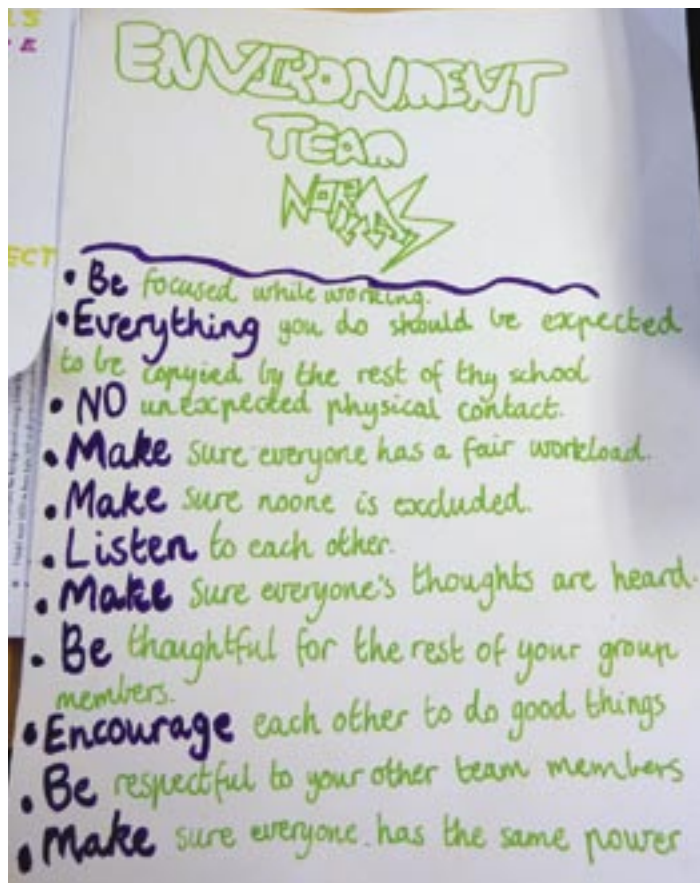 ENVIRONMENT
TEAM
NORMS
ECT
• Be focused while working.
• Everything you do should be expected
to be copyied by the rest of thy school
• NO unexpected physical contact.
• Make sure everyone has a fair workload.
• Make sure noone is excluded.
• Listen to each other.
• Make sure everyone's thoughts are heard.
• Be thoughtful for the rest of your group
members.
• Encourage each other to do good things
• Be respectful to your other team members
• Make sure everyone has the same power